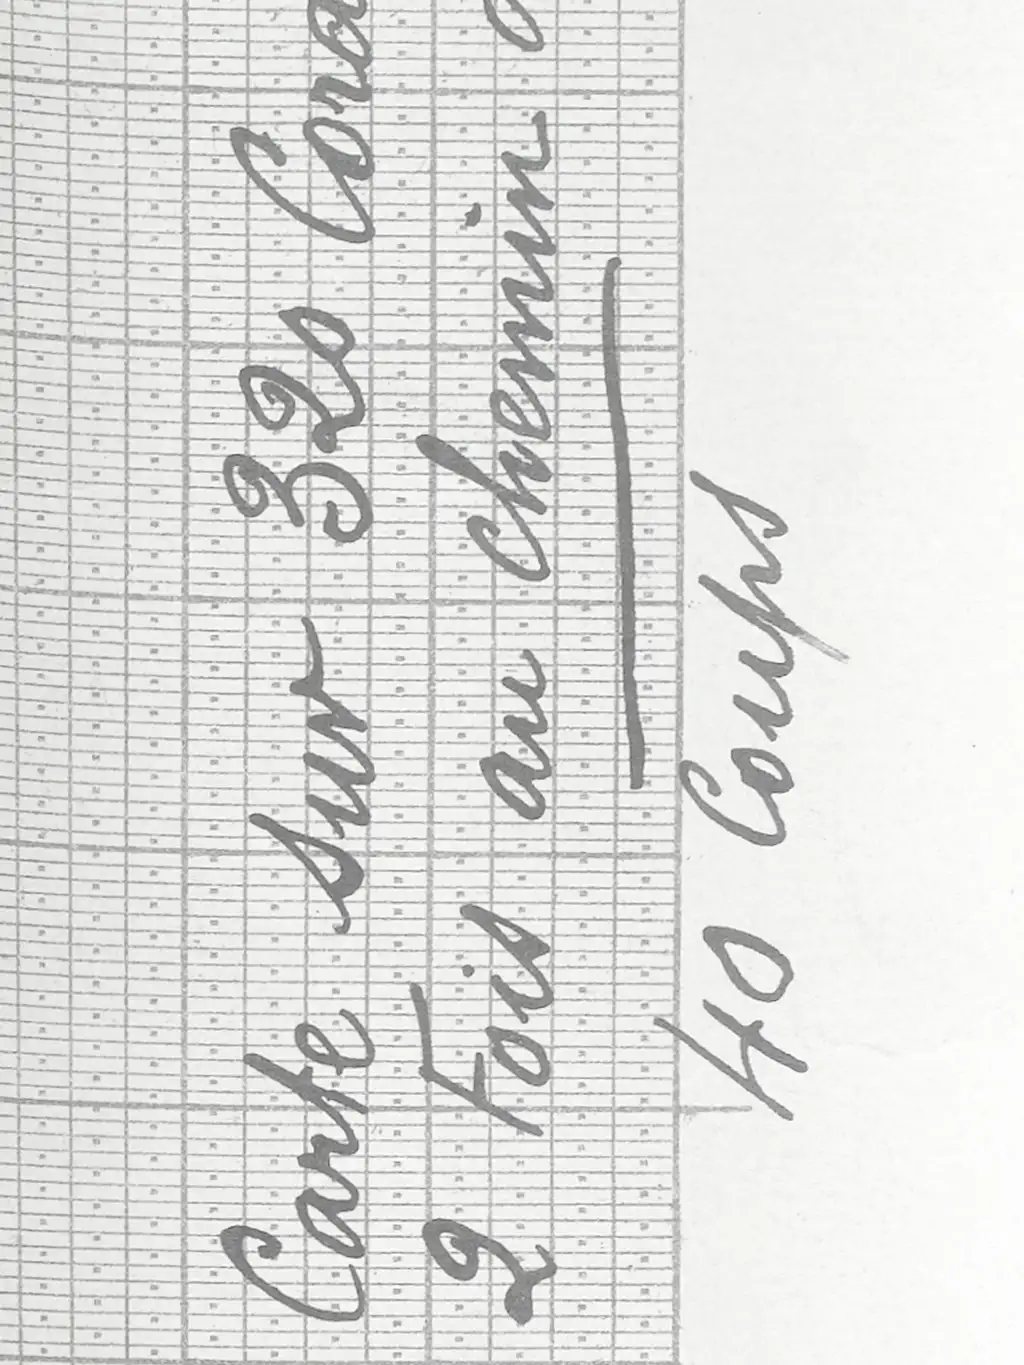 Carte sur 320
2 Fois au chemin
40 Coups